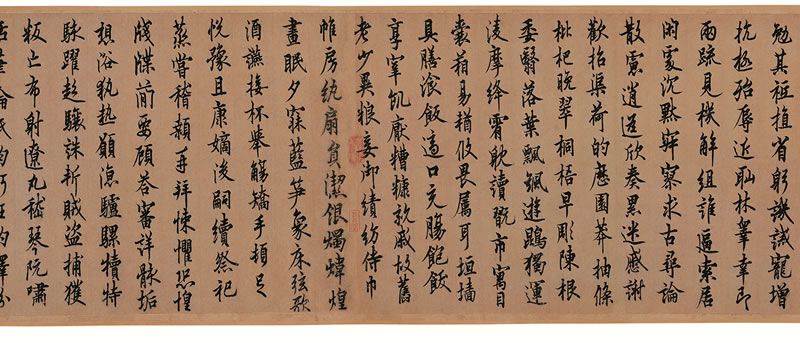 勉其祗植省躬譏誡寵增
抗極殆辱近恥林睾幸即
兩疏見機解組誰逼索居
閑處沉默寂寥求古尋論
散慮逍遙欣奏累遣慼謝
歡招渠荷的歷園莽抽條
枇杷晚翠桐梧早彫陳根
委翳落葉飄颻遊鵾獨運
淩摩絳霄耽讀翫市寓目
囊箱易輶攸畏屬耳垣墻
具膳飡飯適口充腸飽飫
享宰飢厭糟糠親戚故舊
老少異粮妾御績紡侍巾
帷房紈扇員潔銀燭煒煌
晝眠夕寐藍笋象床弦歌
酒讌接杯舉觴矯手頓足
悅豫且康嫡後嗣續祭祀
蒸嘗稽顙再拜悚懼恐惶
牋牒簡要顧答審詳骸垢
想浴執熱願涼驢騾犢特
駭躍超驤誅斬賊盜捕獲
叛亡布射遼丸嵇琴阮嘯
恬筆倫紙鈞巧任釣釋紛